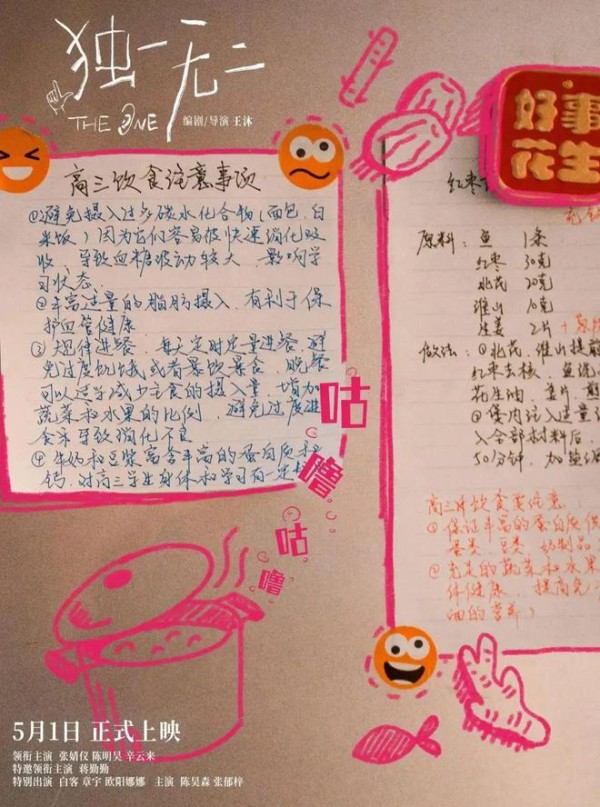 独一无二
THE ONE
编剧/导演 王沐
高三饮食注意事项
①避免摄入过多碳水化合物(面包、白
米饭)因为它们容易被快速消化吸
收,导致血糖波动较大、影响学
习状态.
②丰富适量的脂肪摄入,有利于保
护血管健康
③规律进餐,每天定时定量进餐,避
免过度饥饿或者暴饮暴食,晚餐
可以适当减少主食的摄入量,增加
蔬菜和水果的比例,避免过度进
食导致消化不良
④牛奶和豆浆富含丰富的蛋白质和
钙,对高三学生身体和学习有一定
咕
噜
咕
噜
好事
花生
红枣
原料: 鱼 1条
红枣 30克
北芪 20克
淮山 10克
生姜 2片
做法:①北芪、淮山提前
红枣去核、鱼洗
花生油、姜片、煎
②煲内注入适量
入全部材料后
50分钟,加盐
高三生饮食要注意
①保证丰富的蛋白质
蛋类、豆类、奶制品
②充足的蔬菜和水果
体健康、提高免
细的营养)
5月1日 正式上映
领衔主演 张婧仪 陈明昊 辛云来
特邀领衔主演 蒋勤勤
特别出演 白客 章宇 欧阳娜娜 主演 陈昊森 张郁梓